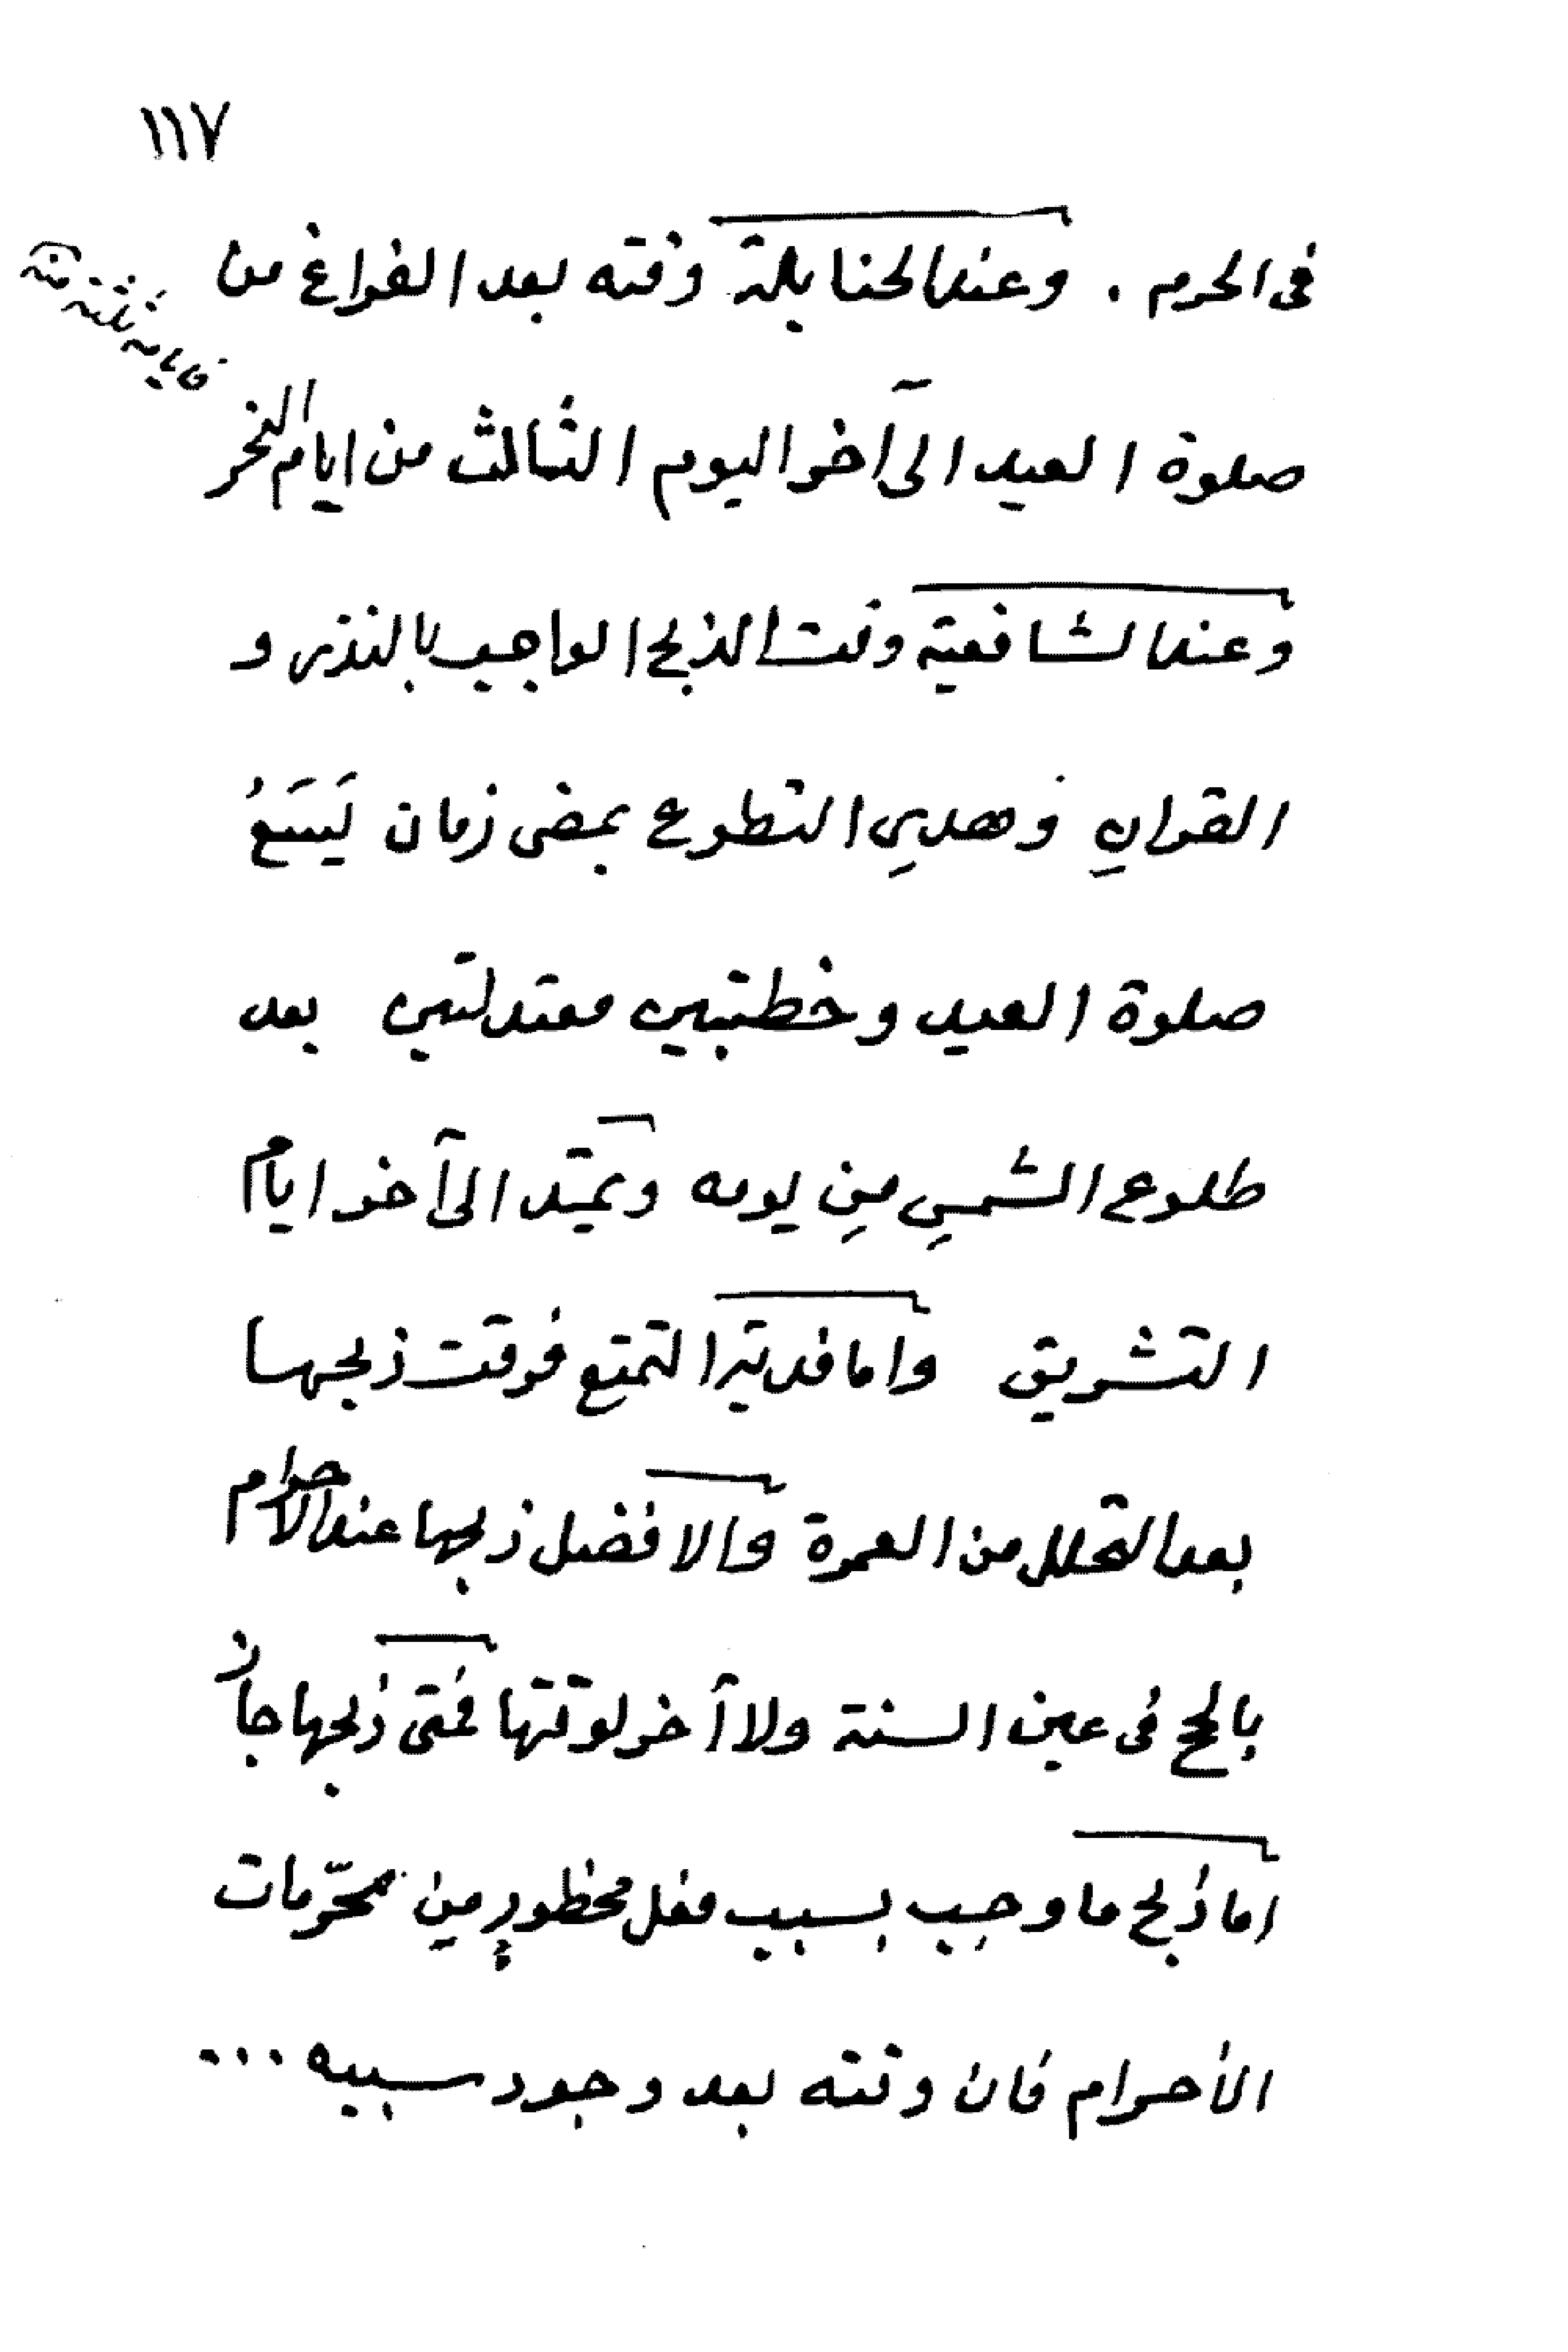 ١١٧
فى الحرم . وعند الحنابلة وقته بعد الفراغ من
صلوة العيد الى آخر اليوم الثالث من ايام النحر
وعند الشافعية وقت الذبح الواجب بالنذر و
القرانِ وهديِ التطوع بمضى زمان يَسَعُ
صلوة العيد وخطبتين معتدلتين بعد
طلوع الشمسِ مِن يومه ويمتد الى آخر ايام
التشريق واما فدية التمتع فوقت ذبحها
بعد التحلل من العمرة والافضل ذبحها عند الاحرام
بالحج فى عين السنة ولا آخر لوقتها فمتى ذبحها جاز
اما ذبح ما وجب بسبب فعل محظورٍ مِن محرّمات
الأحرام فان وقته بعد وجود سببه ...